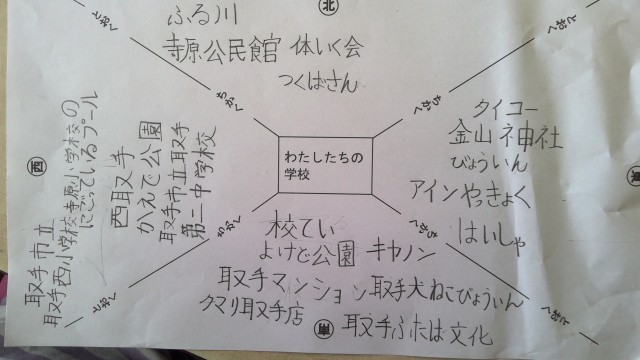 北
とおく
とおく
ふる川
寺原公民館 体いく会
つくばさん
ちかく
ちかく
西
取手市立
取手西小学校寺原小学校の
にごっているプール
西取手
かえで公園
取手市立取手
第二中学校
わたしたちの
学校
タイコー
金山神社
びょういん
アインやっきょく
はいしゃ
東
ちかく
ちかく
校てい
よけで公園 キヤノン
取手マンション 取手犬ねこびょういん
クマリ取手店
取手ふたは文化
とおく
とおく